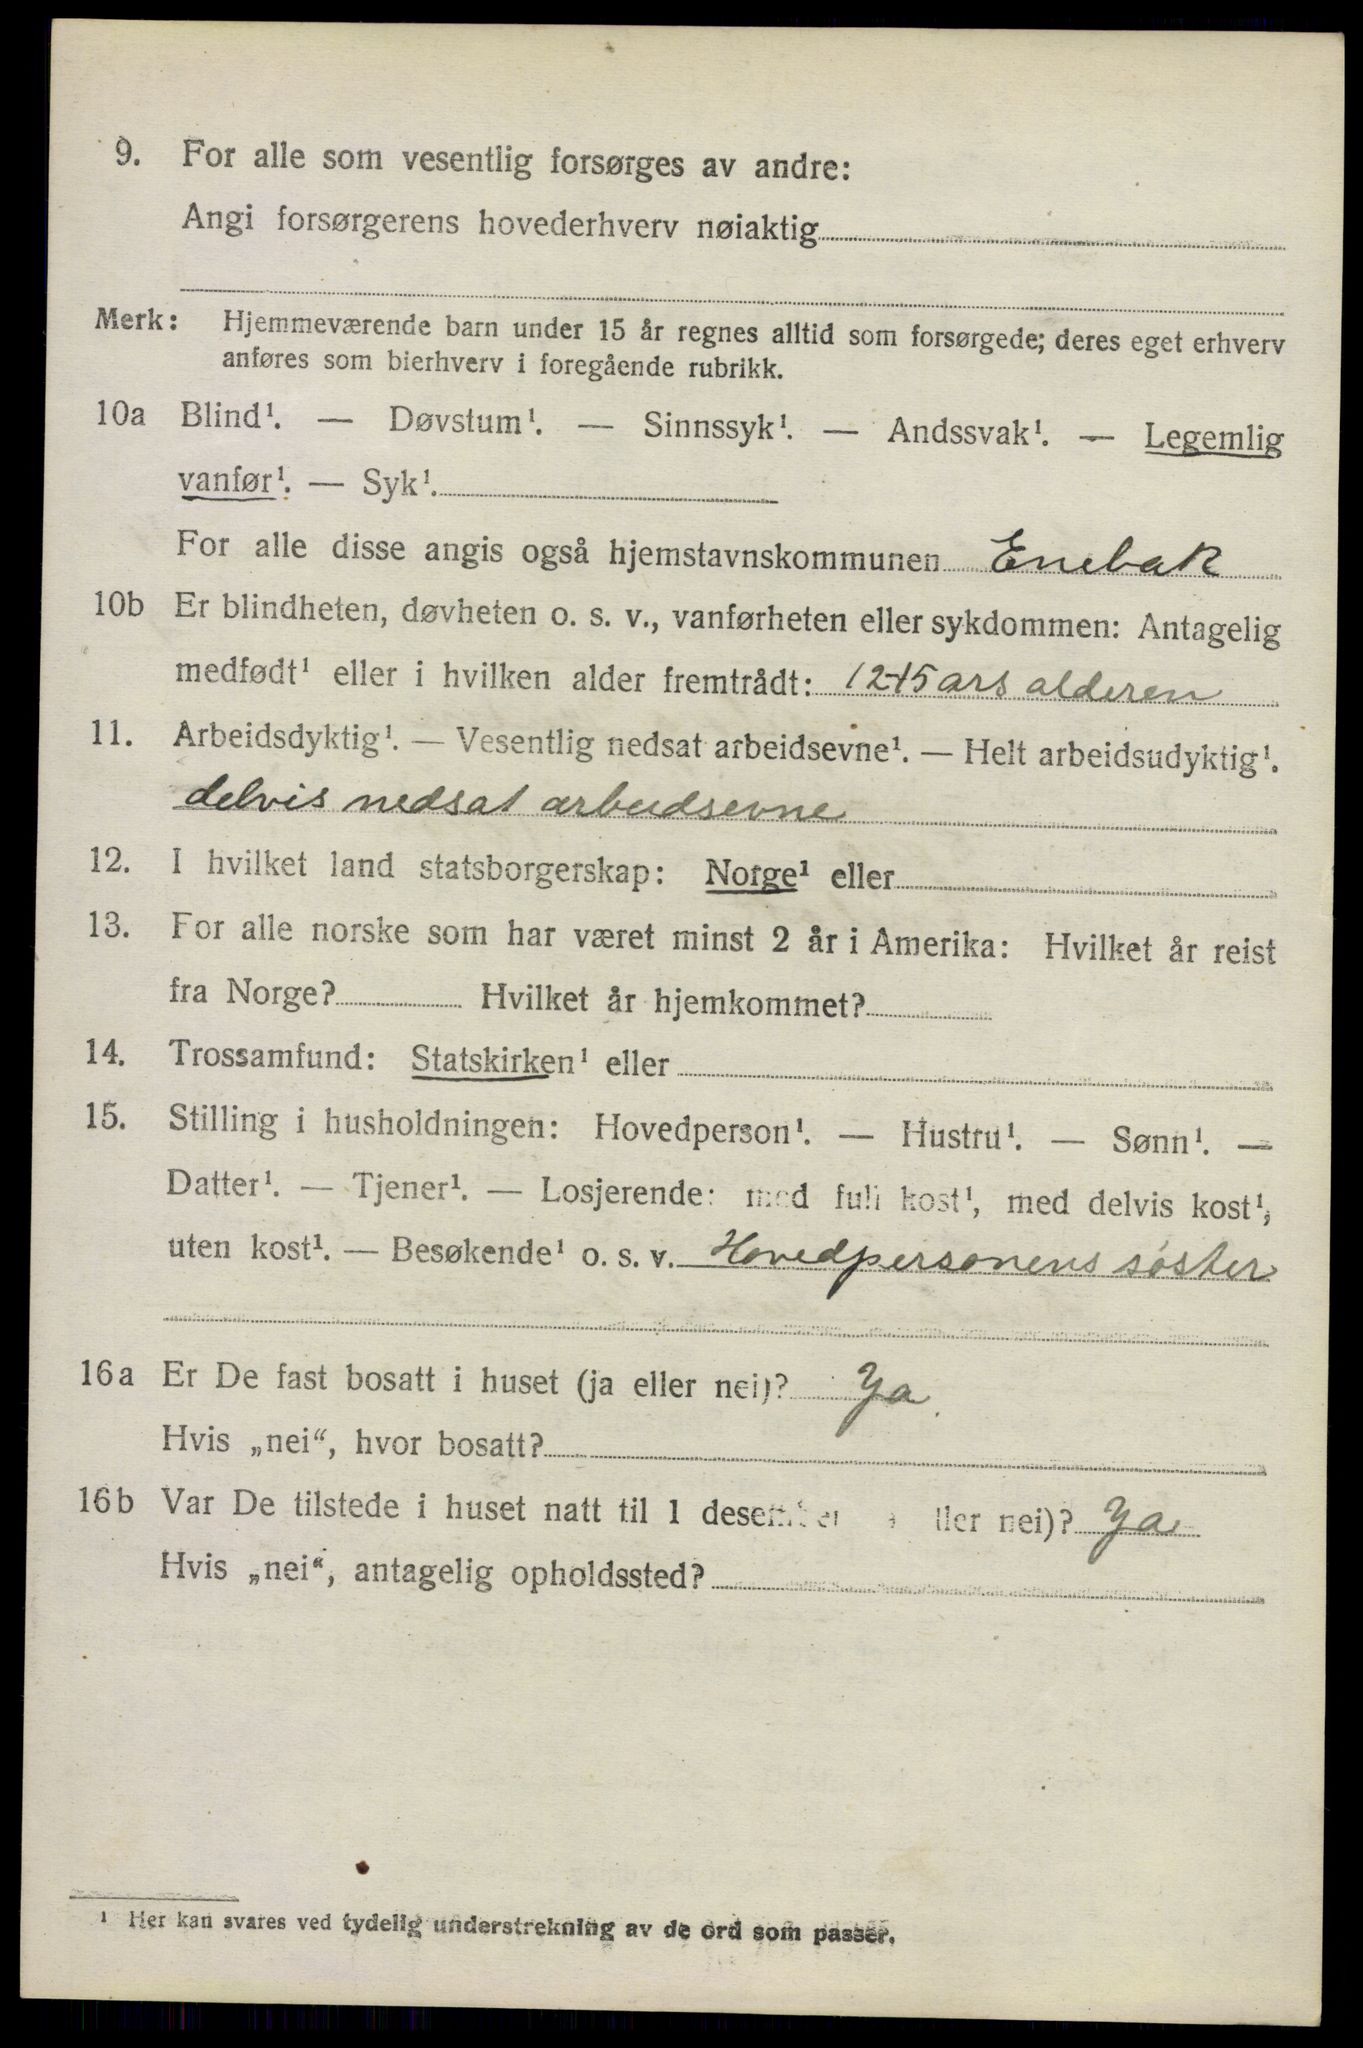 9. For alle som vesentlig forsørges av andre:
Angi forsørgerens hovederhverv nøiaktig
Merk: Hjemmeværende barn under 15 år regnes alltid som forsørgede; deres eget erhverv
anføres som bierhverv i foregående rubrikk.
10a Blind¹. — Døvstum¹. — Sinnssyk¹. — Andssvak¹. — Legemlig
vanfør¹. — Syk¹.
For alle disse angis også hjemstavnskommunen Enebak
10b Er blindheten, døvheten o. s. v., vanførheten eller sykdommen: Antagelig
medfødt¹ eller i hvilken alder fremtrådt: 12-15 ars alderen
11. Arbeidsdyktig¹. — Vesentlig nedsat arbeidsevne¹. — Helt arbeidsudyktig¹.
delvis nedsat arbeidsevne
12. I hvilket land statsborgerskap: Norge¹ eller
13. For alle norske som har været minst 2 år i Amerika: Hvilket år reist
fra Norge? Hvilket år hjemkommet?
14. Trossamfund: Statskirken¹ eller
15. Stilling i husholdningen: Hovedperson¹. — Hustru¹. — Sønn¹. —
Datter¹. — Tjener¹. — Losjerende: med full kost¹, med delvis kost¹,
uten kost¹. — Besøkende¹ o. s. v. Hovedpersonens søster
16a Er De fast bosatt i huset (ja eller nei)? Ja
Hvis „nei“, hvor bosatt?
16b Var De tilstede i huset natt til 1 desember ller nei)? Ja
Hvis „nei“, antagelig opholdssted?
¹ Her kan svares ved tydelig understrekning av de ord som passer.